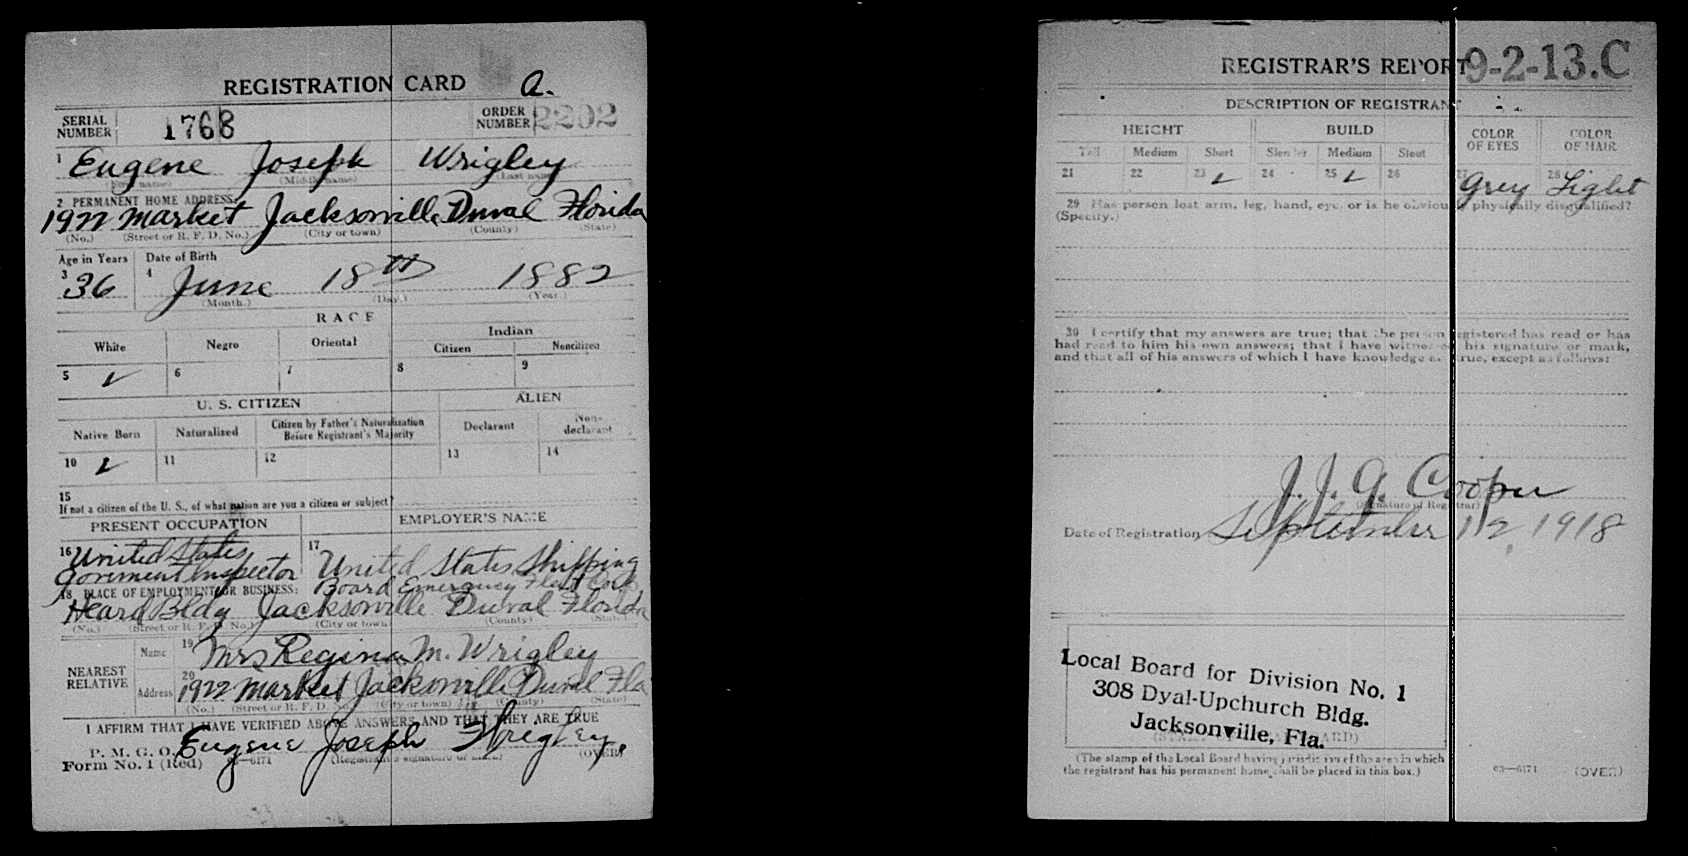 REGISTRATION CARD a.
SERIAL NUMBER 1768 ORDER NUMBER 2202
1 Eugene Joseph Wrigley
(First name) (Middle name) (Last name)
2 PERMANENT HOME ADDRESS:
1922 Market Jacksonville Duval Florida
(No.) (Street or R. F. D. No.) (City or town) (County) (State)
Age in Years Date of Birth
3 36 4 June 18th 1882
(Month.) (Day.) (Year.)
RACE
White Negro Oriental Indian
Citizen Noncitizen
5 ✓ 6 7 8 9
U. S. CITIZEN ALIEN
Native Born Naturalized Citizen by Father's Naturalization Before Registrant's Majority Declarant Non-declarant
10 ✓ 11 12 13 14
15
If not a citizen of the U. S., of what nation are you a citizen or subject?
PRESENT OCCUPATION EMPLOYER'S NAME
16 United States 17 United States Shipping
Goverment Inspector Board Emergency Fleet
18 PLACE OF EMPLOYMENT OR BUSINESS:
Heard Bldg Jacksonville Duval Florida
(No.) (Street or R. F. D. No.) (City or town) (County) (State)
NEAREST RELATIVE Name 19 Mrs Regina M. Wrigley
Address 20 1922 Market Jacksonville Duval Fla
(No.) (Street or R. F. D. No.) (City or town) (County) (State)
I AFFIRM THAT I HAVE VERIFIED ABOVE ANSWERS AND THAT THEY ARE TRUE
P. M. G. O. Eugene Joseph Wrigley.
Form No. 1 (Red) 03—6171 (Registrant's signature or mark) (OVER)
REGISTRAR'S REPORT 9-2-13.C
DESCRIPTION OF REGISTRANT
HEIGHT BUILD COLOR OF EYES COLOR OF HAIR
Tall Medium Short Slender Medium Stout
21 22 23 ✓ 24 25 ✓ 26 27 Grey 28 Light
29 Has person lost arm, leg, hand, eye, or is he obviously physically disqualified?
(Specify.)
30 I certify that my answers are true; that the person registered has read or has
had read to him his own answers; that I have witnessed his signature or mark,
and that all of his answers of which I have knowledge are true, except as follows:
J. J. G. Cooper
(Signature of Registrar)
Date of Registration September 12, 1918
Local Board for Division No. 1
308 Dyal-Upchurch Bldg.
Jacksonville, Fla.
(The stamp of the Local Board having jurisdiction of the area in which
the registrant has his permanent home shall be placed in this box.)
03—6171 (OVER)